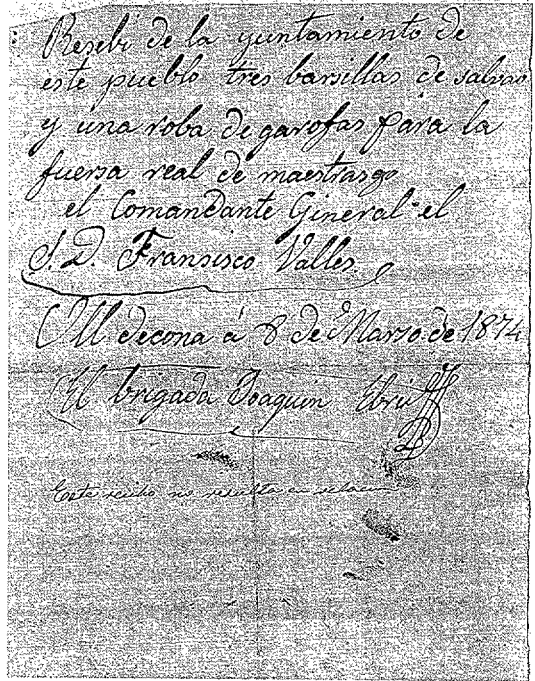 Resebi de la yuntamiento de
este pueblo tres barsillas de salvao
y una roba de garofas para la
fuersa real de maestrasgo
el Comandante Gineral el
S. D. Fransisco Valles.
Ull decona á 8 de Marso de 1874
El brigada Joaquin Ebri
Este recibo no resulta en relacion